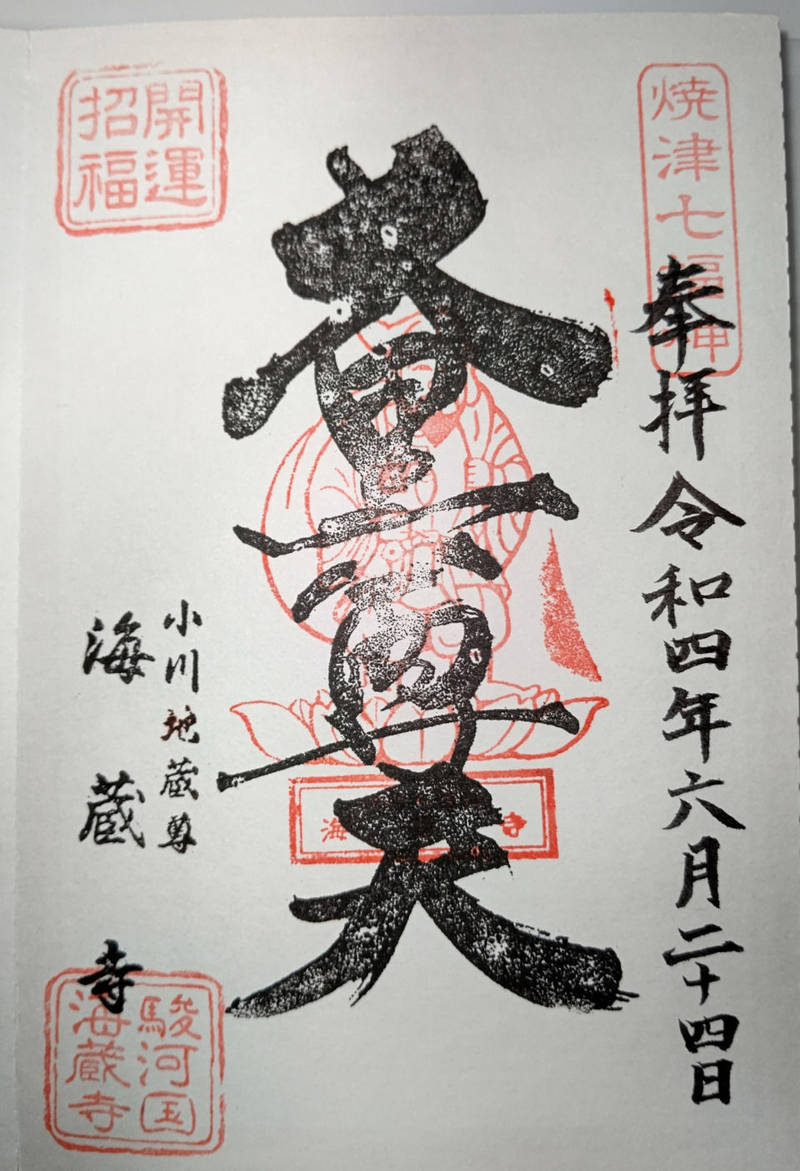 焼津七福神
奉拝 令和四年六月二十四日
大黒尊天
開運
招福
小川地蔵尊
海蔵寺
駿河国
海蔵寺